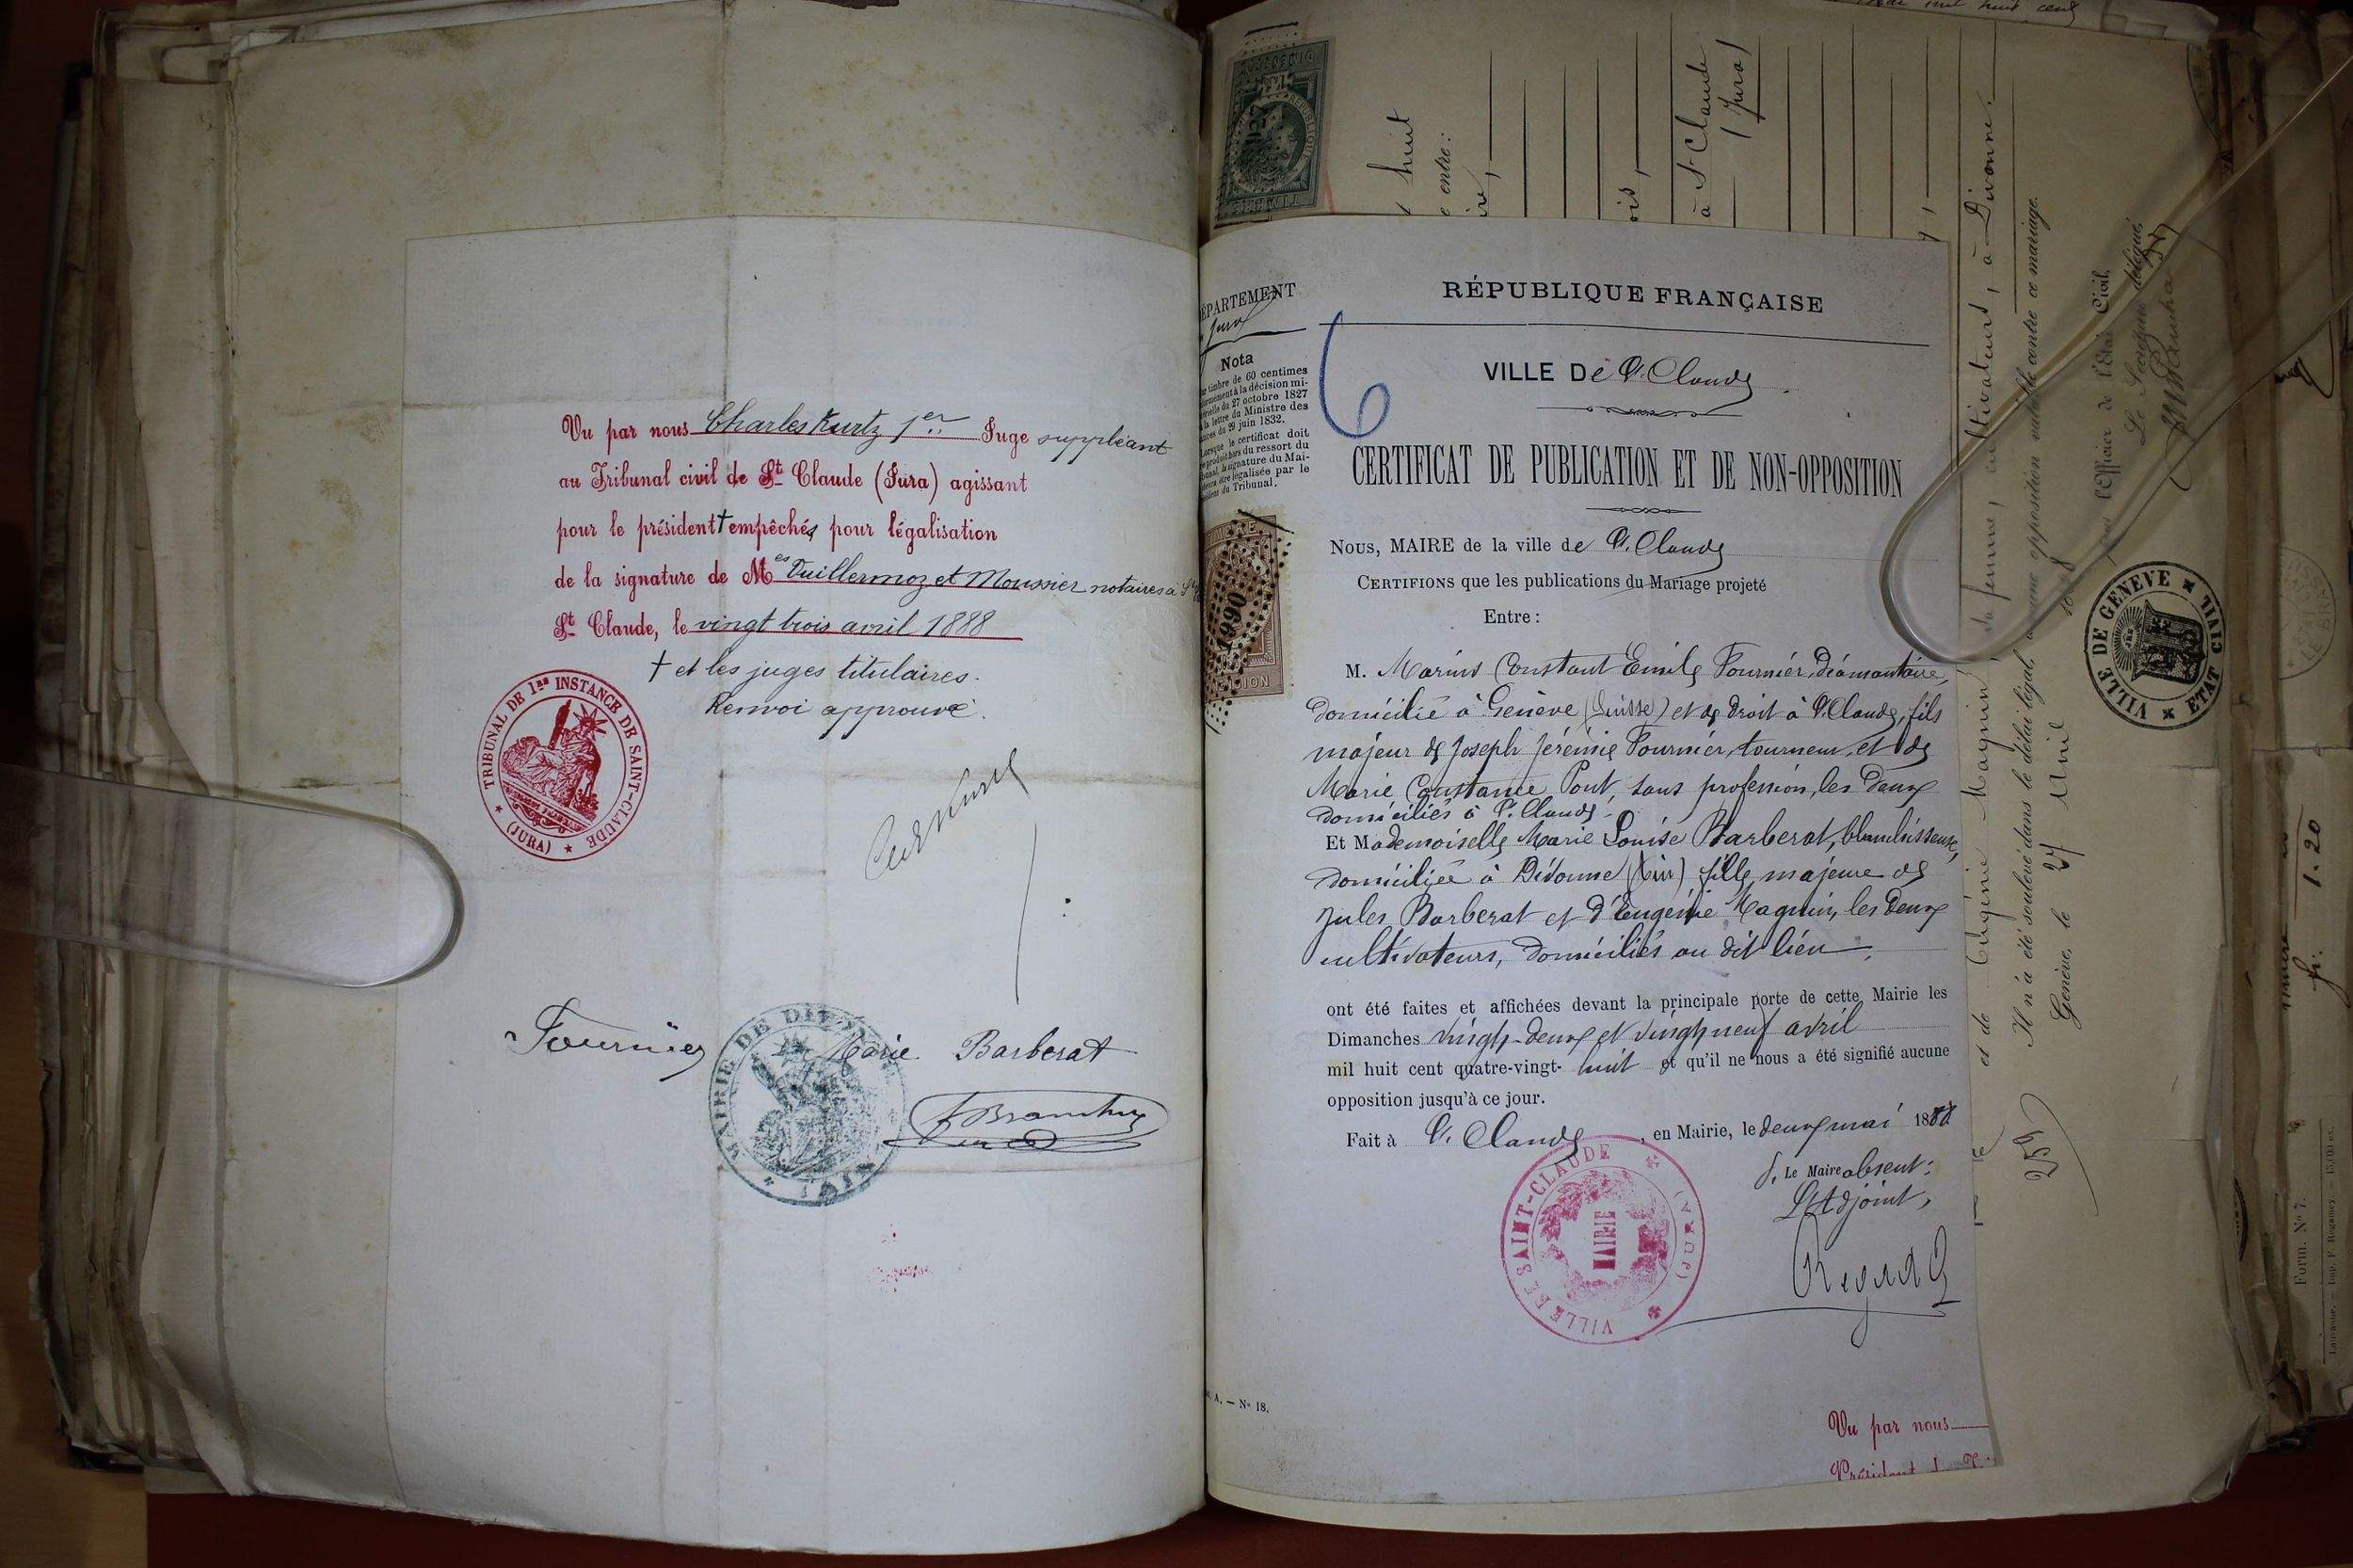 Vu par nous Charles Kurtz 1er Juge suppléant
au Tribunal civil de St Claude (Jura) agissant
pour le président † empêchés pour légalisation
de la signature de Mes Vuillermoz et Moussier notaires à St
St Claude, le vingt trois avril 1888
† et les juges titulaires.
Renvoi approuvé.
TRIBUNAL DE 1re INSTANCE DE SAINT-CLAUDE
(JURA)
Fournier
Marie Barberat
MAIRIE DE DIVONNE
(AIN)
DÉPARTEMENT
Jura
Nota
timbre de 60 centimes
à la décision mi-
du 27 octobre 1827
la lettre du Ministre des
du 29 juin 1832.
Lorsque le certificat doit
produit hors du ressort du
la signature du Mai-
être légalisée par le
du Tribunal.
1990
A. — No 18.
6
RÉPUBLIQUE FRANÇAISE
VILLE De St. Claude
CERTIFICAT DE PUBLICATION ET DE NON-OPPOSITION
NOUS, MAIRE de la ville de St. Claude
CERTIFIONS que les publications du Mariage projeté
Entre :
M. Marius Constant Emile Fournier, diamantaire,
domicilié à Genève (Suisse) et de droit à St. Claude, fils
majeur de Joseph Jérémie Fournier, tourneur, et de
Marie Constance Pont, sans profession, les deux
domiciliés à St. Claude.
Et Mademoiselle Marie Louise Barberat, blanchisseuse,
domiciliée à Divonne (Ain) fille majeure de
Jules Barberat et d'Eugénie Magnin, les deux
cultivateurs, domiciliés au dit lieu,
ont été faites et affichées devant la principale porte de cette Mairie les
Dimanches vingt-deux et vingt neuf avril
mil huit cent quatre-vingt- huit et qu'il ne nous a été signifié aucune
opposition jusqu'à ce jour.
Fait à St. Claude, en Mairie, le deux mai 1888
P. Le Maire absent :
L'Adjoint,
VILLE DE SAINT-CLAUDE
(JURA)
MAIRIE
Vu par nous
huit
entre :
à St Claude
(Jura)
et de Eugénie Magnin, sa femme, cultivateurs, à Divonne.
Il n'a été soulevé dans le délai légal, aucune opposition valable contre ce mariage.
Genève, le 27 Avril
l'Officier de l'État Civil,
Le Secrétaire délégué,
259
VILLE DE GENEVE
ETAT CIVIL
fr. 1.20
Form. No 7.